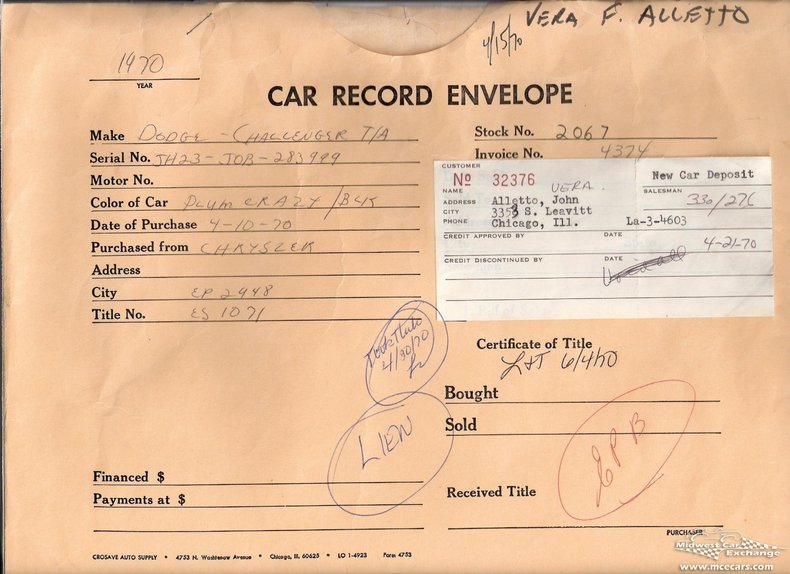 VERA F. ALLETTO
4/15/70
1970
YEAR
CAR RECORD ENVELOPE
Make DODGE - CHALLENGER T/A
Stock No. 2067
Serial No. JH23-JOB-283999
Invoice No. 4374
Motor No.
Color of Car PLUM CRAZY / BLK
Date of Purchase 4-10-70
Purchased from CHRYSLER
Address
City EP 2948
Title No. ES 1071
CUSTOMER
No 32376
VERA
New Car Deposit
NAME
SALESMAN
ADDRESS Alletto, John
336/276
CITY 3353 S. Leavitt
PHONE Chicago, Ill.
La-3-4603
CREDIT APPROVED BY
DATE
4-21-70
CREDIT DISCONTINUED BY
DATE
4/30/70
Certificate of Title
L&T 6/4/70
Bought
Sold
LIEN
EPB
Financed $
Payments at $
Received Title
PURCHASER
CROSAVE AUTO SUPPLY • 4753 N. Washtenaw Avenue • Chicago, Ill. 60625 • LO 1-4923 Form 4753
Midwest Car Exchange
www.mcecars.com